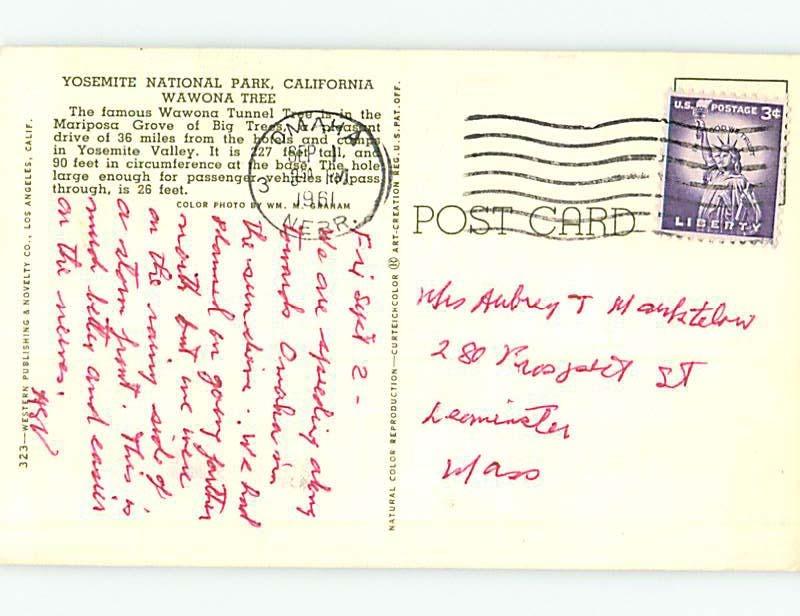 YOSEMITE NATIONAL PARK, CALIFORNIA
WAWONA TREE
The famous Wawona Tunnel Tree is in the
Mariposa Grove of Big Trees, a pleasant
drive of 36 miles from the hotels and camps
in Yosemite Valley. It is 227 feet tall, and
90 feet in circumference at the base. The hole
large enough for passenger vehicles to pass
through, is 26 feet.
COLOR PHOTO BY WM. M. GRAHAM
323—WESTERN PUBLISHING & NOVELTY CO., LOS ANGELES, CALIF.
Fri Sept 2 -
We are speeding along
towards Omaha in
the sunshine. We had
planned on going farther
north but we were
on the rainy side of
a storm front. This is
much better and easier
on the nerves.
NATURAL COLOR REPRODUCTION—CURTEICHCOLOR ® ART-CREATION REG. U.S. PAT. OFF.
OMAHA
SEP 1
PM
1961
3
NEBR.
U.S. POSTAGE 3¢
LIBERTY
POST CARD
Mrs Aubrey T
280 Prospect St
Leominster
Mass